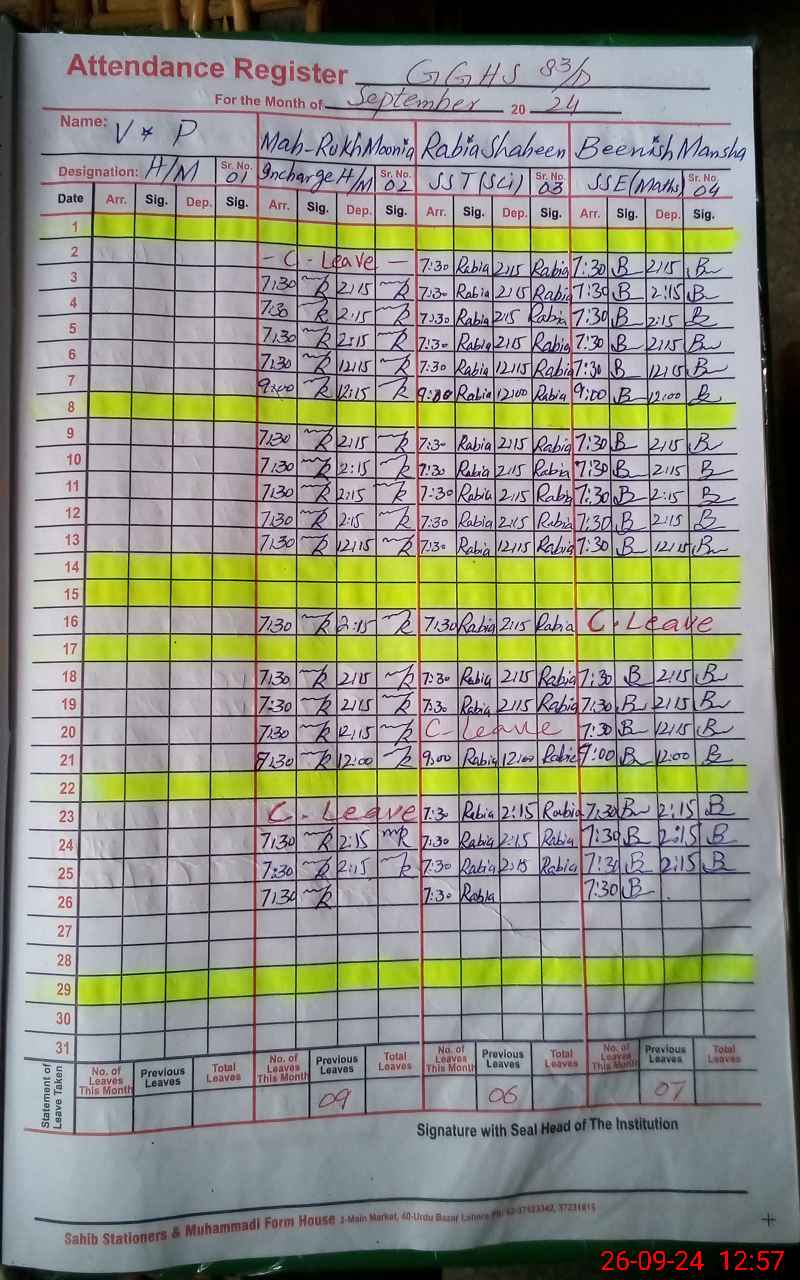 Attendance Register GGHS 83/P
For the Month of September 20 24
Name: V * P Mah-Rukh Moonia Rabia Shaheen Beenish Mansha
Designation: H/M Sr. No. 01 Incharge H/M Sr. No. 02 SST (Sci) Sr. No. 03 SSE (Maths) Sr. No. 04
Date Arr. Sig. Dep. Sig. Arr. Sig. Dep. Sig. Arr. Sig. Dep. Sig. Arr. Sig. Dep. Sig.
1
2 - C - Leave - 7:30 Rabia 2:15 Rabia 7:30 B 2:15 B
3 7:30 2:15 7:30 Rabia 2:15 Rabia 7:30 B 2:15 B
4 7:30 2:15 7:30 Rabia 2:15 Rabia 7:30 B 2:15 B
5 7:30 2:15 7:30 Rabia 2:15 Rabia 7:30 B 2:15 B
6 7:30 12:15 7:30 Rabia 12:15 Rabia 7:30 B 12:15 B
7 9:00 12:15 9:00 Rabia 12:00 Rabia 9:00 B 12:00 B
8
9 7:30 2:15 7:30 Rabia 2:15 Rabia 7:30 B 2:15 B
10 7:30 2:15 7:30 Rabia 2:15 Rabia 7:30 B 2:15 B
11 7:30 2:15 7:30 Rabia 2:15 Rabia 7:30 B 2:15 B
12 7:30 2:15 7:30 Rabia 2:15 Rabia 7:30 B 2:15 B
13 7:30 12:15 7:30 Rabia 12:15 Rabia 7:30 B 12:15 B
14
15
16 7:30 2:15 7:30 Rabia 2:15 Rabia C. Leave
17
18 7:30 2:15 7:30 Rabia 2:15 Rabia 7:30 B 2:15 B
19 7:30 2:15 7:30 Rabia 2:15 Rabia 7:30 B 2:15 B
20 7:30 12:15 C - Leave 7:30 B 12:15 B
21 12:00 9:00 Rabia 12:00 Rabia 9:00 B 12:00 B
22
23 C - Leave 7:30 Rabia 2:15 Rabia 7:30 B 2:15 B
24 7:30 2:15 7:30 Rabia 2:15 Rabia 7:30 B 2:15 B
25 7:30 2:15 7:30 Rabia 2:15 Rabia 7:30 B 2:15 B
26 7:30 7:30 Rabia 7:30 B
27
28
29
30
31
Statement of Leave Taken No. of Leaves This Month Previous Leaves Total Leaves No. of Leaves This Month Previous Leaves Total Leaves No. of Leaves This Month Previous Leaves Total Leaves No. of Leaves This Month Previous Leaves Total Leaves
09 06 07
Signature with Seal Head of The Institution
Sahib Stationers & Muhammadi Form House 2-Main Market, 40-Urdu Bazar Lahore
26-09-24 12:57